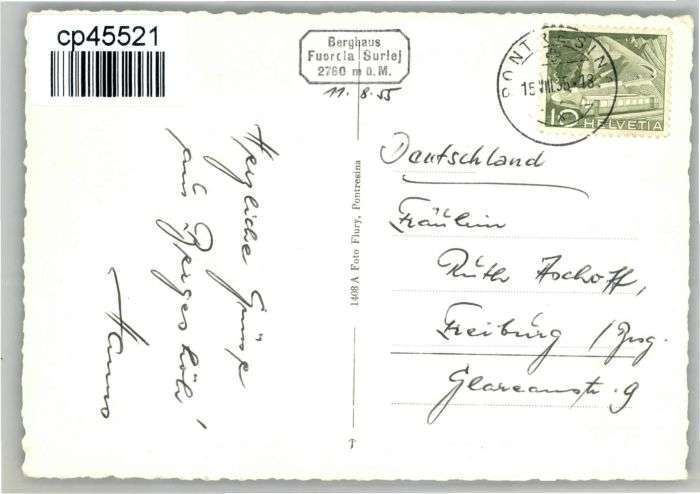 cp45521
Berghaus
Fuorcla Surlej
2760 m ü. M.
11.8.55
PONTRESINA
15.VIII.55-18
10
HELVETIA
Herzliche Grüße
aus Bergeshöh'
Hanno
1408 A Foto Flury, Pontresina
Deutschland
Fräulein
Ruth Aschoff,
Freiburg / Brsg.
Glareanstr. 9